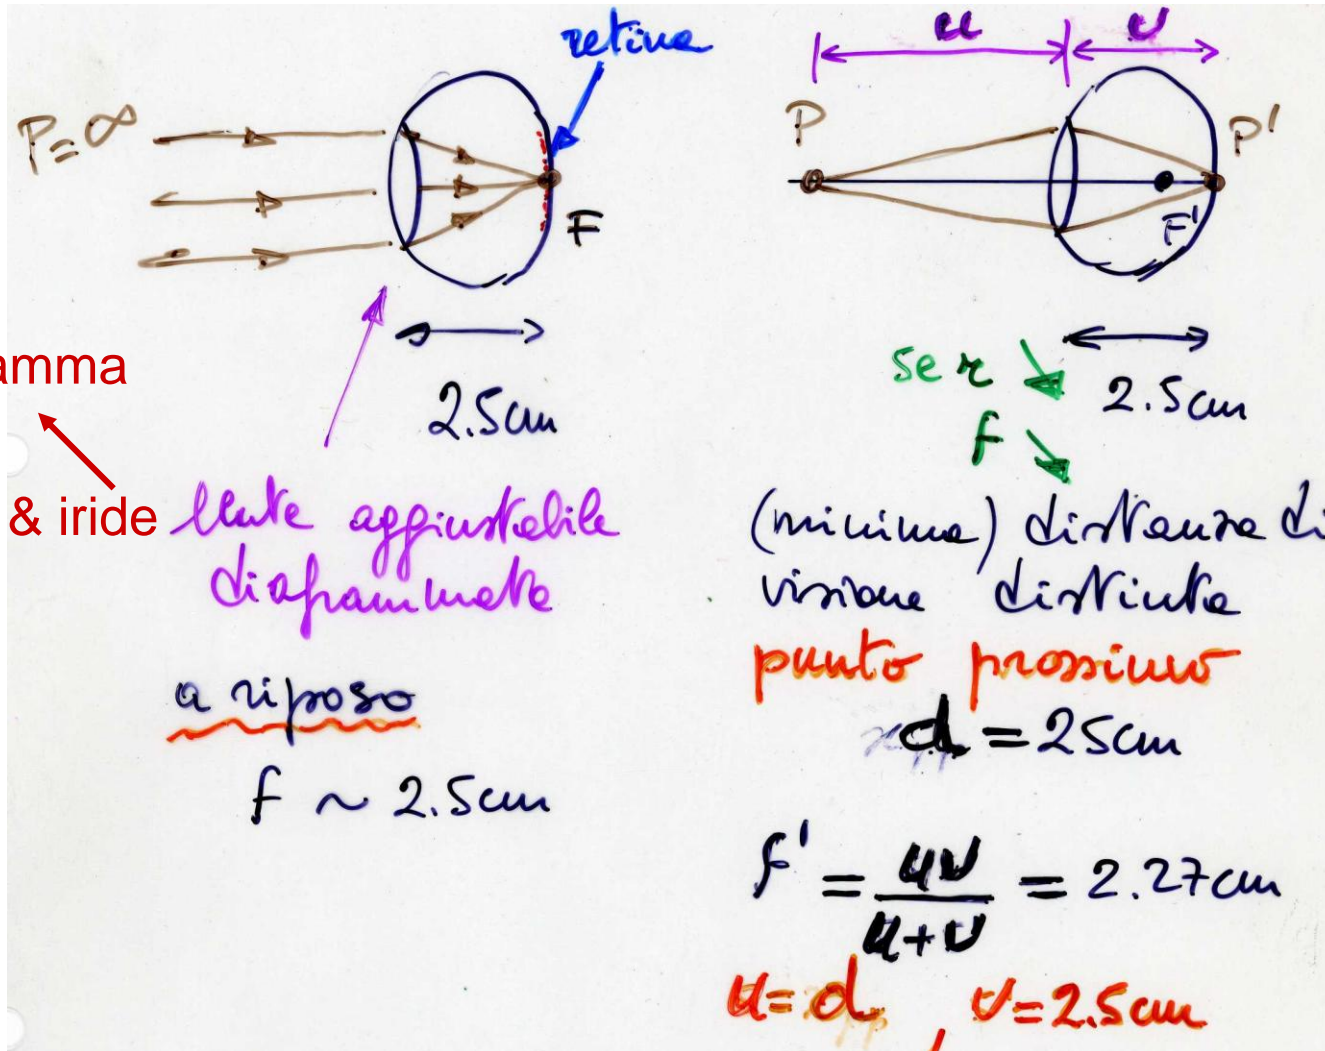 retina
P=∞
F
amma
2.5cm
& iride
lente aggiustabile
diaframmata
a riposo
f ~ 2.5cm
u v
P
P'
F'
se r ↘
f ↘
2.5cm
(minima) distanza di
visione distinta
punto prossimo
d = 25cm
f' = uv/u+v = 2.27cm
u=d, v=2.5cm